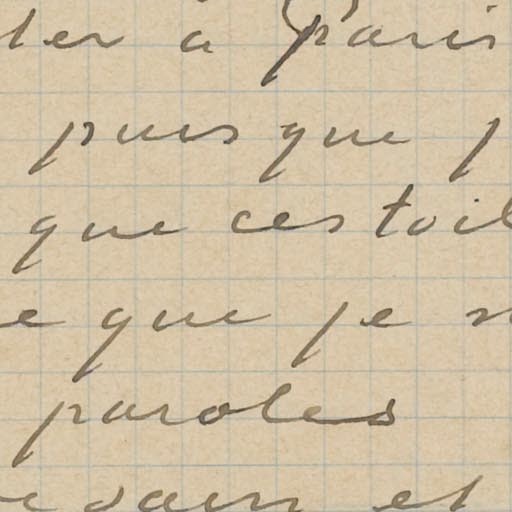 ler à Paris
puisque j
que ces toil
e que je n
paroles
et